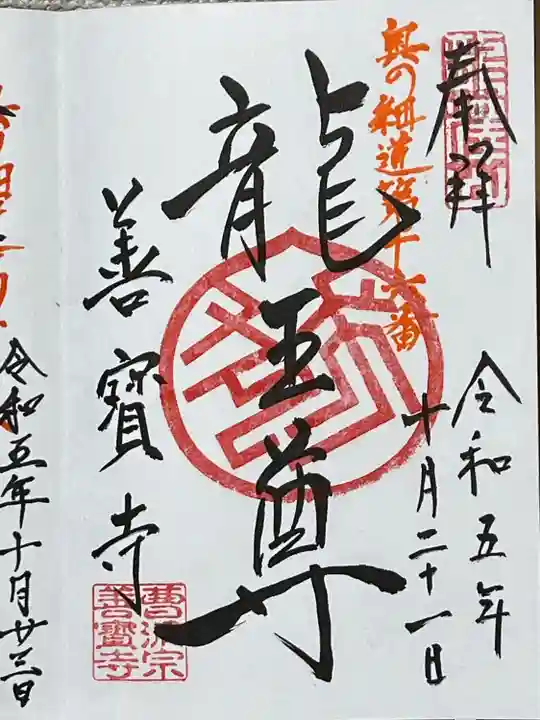 奉拝
奥の細道第十六番
令和五年
十月二十一日
龍王尊
善寳寺
曹洞宗
善寳寺
令和五年十月廿三日